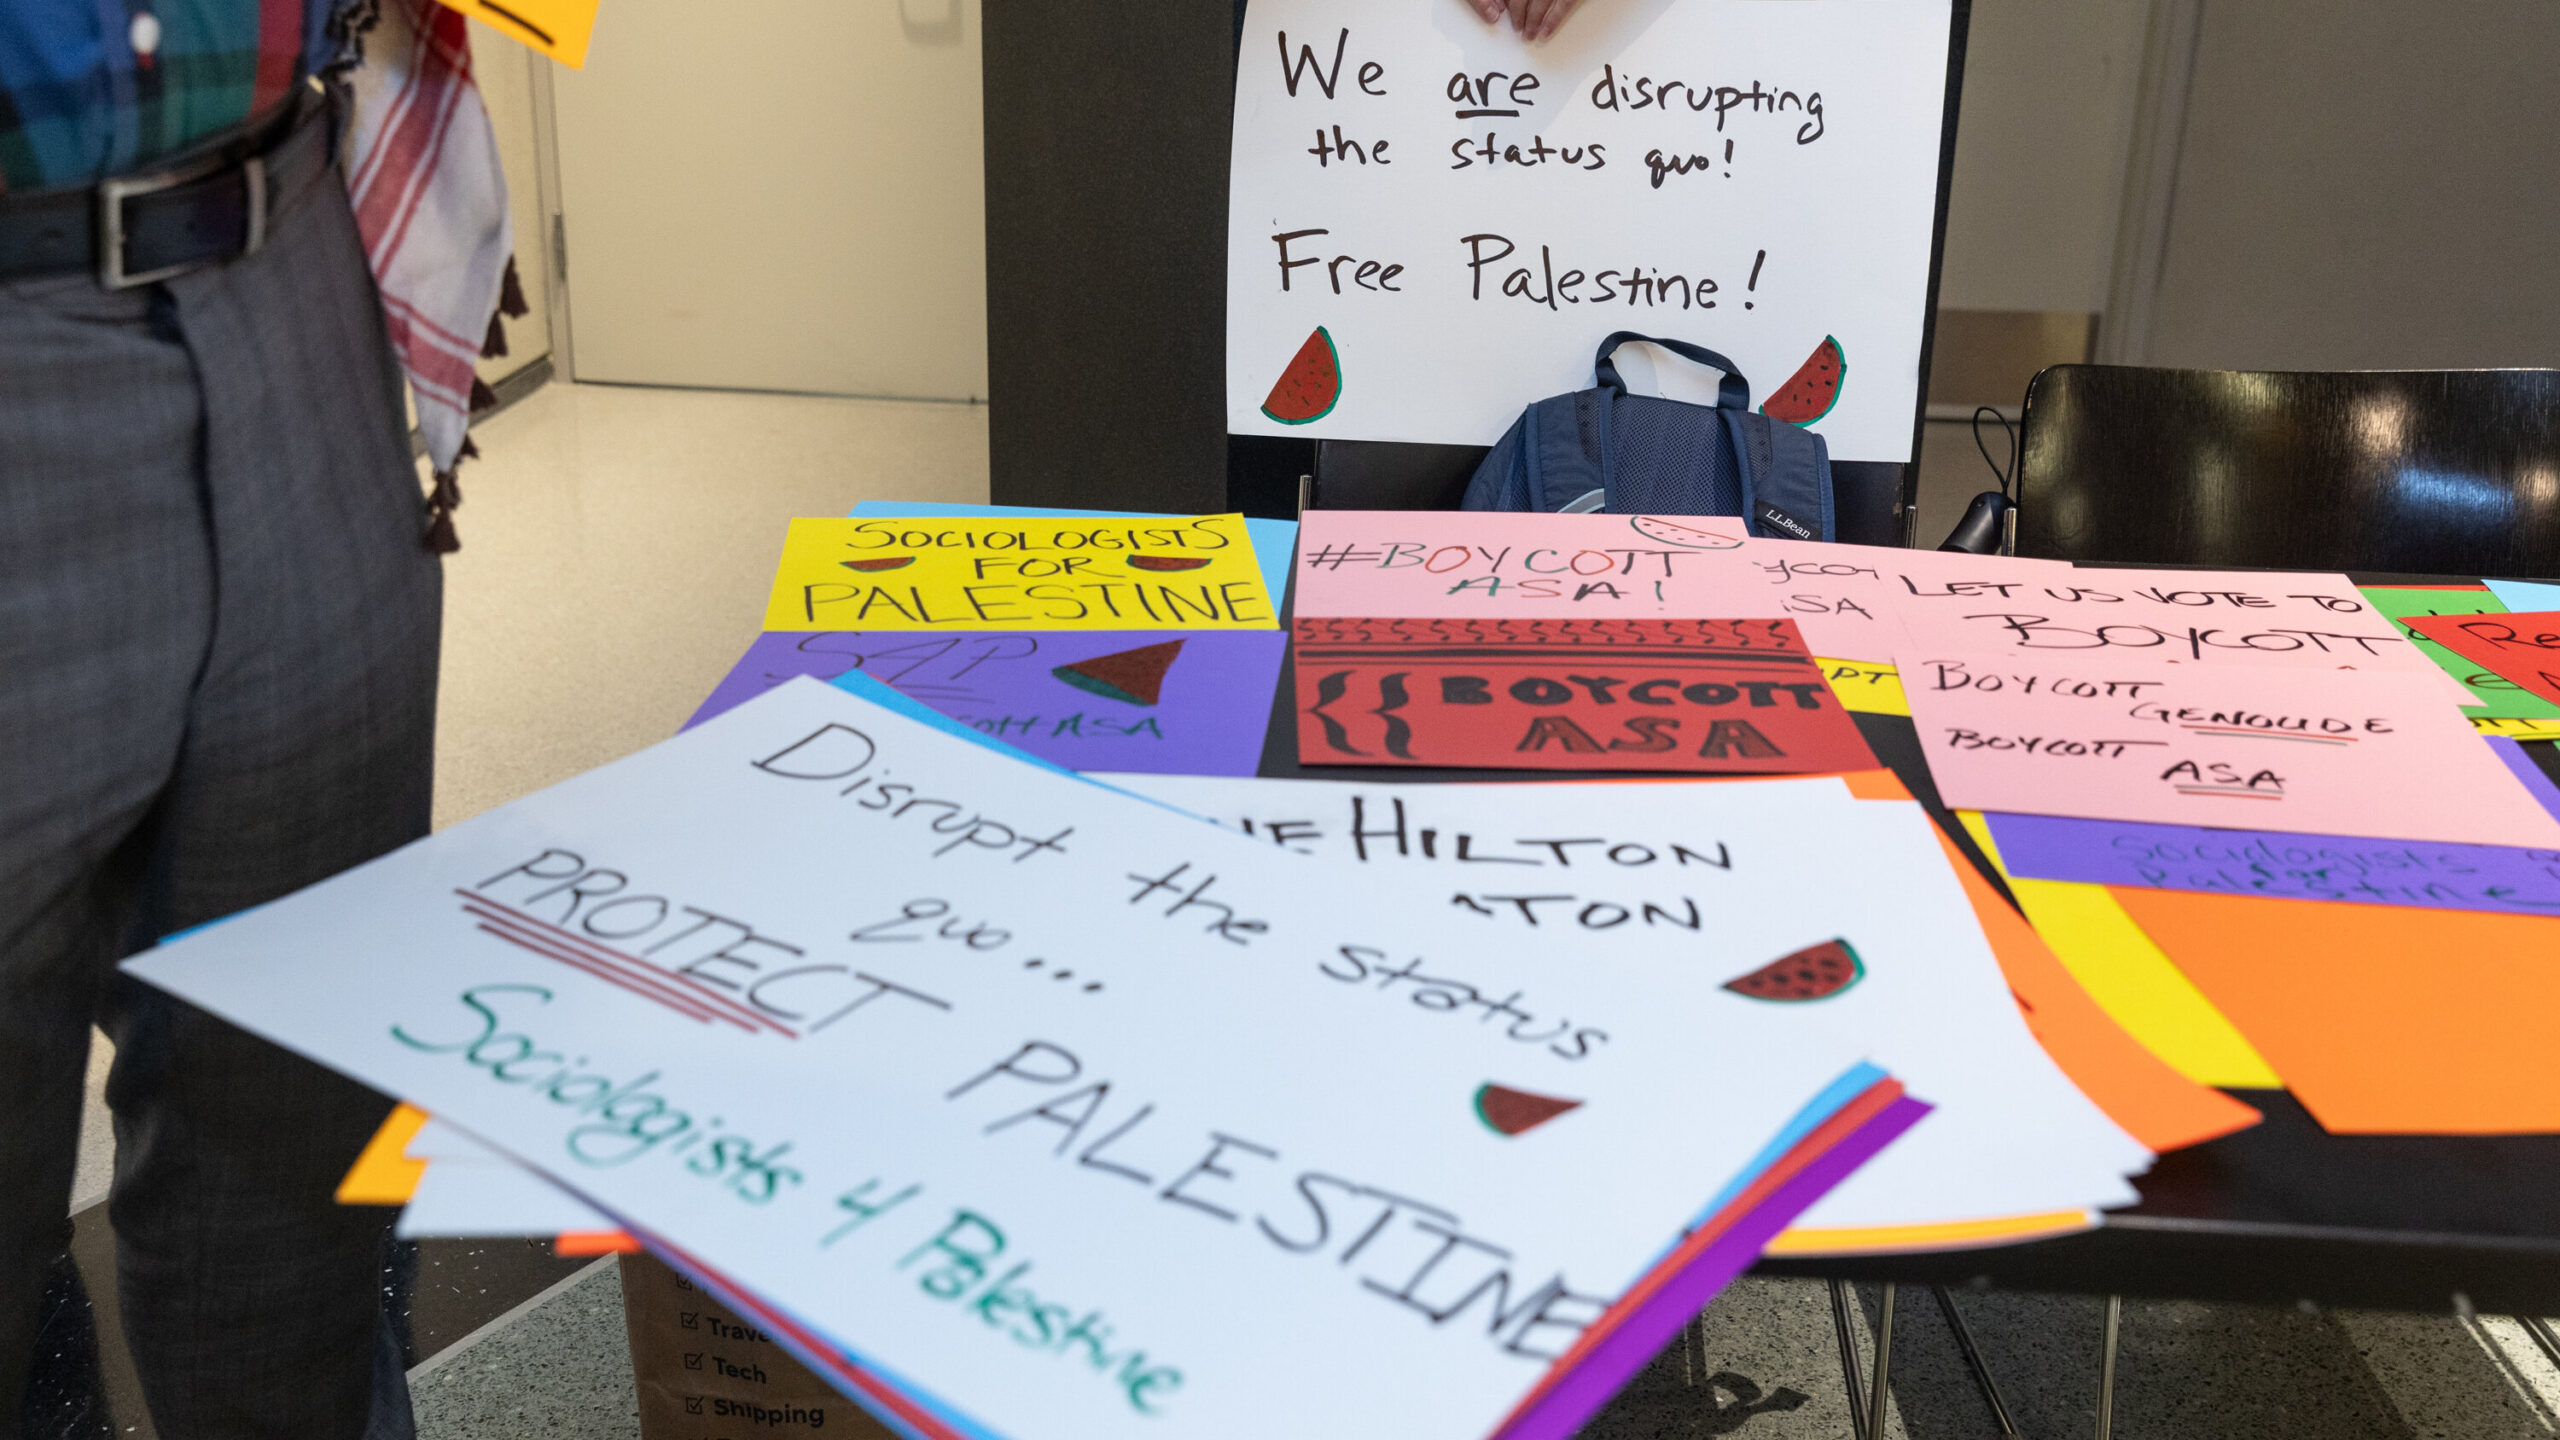 We are disrupting
the status quo!
Free Palestine!
LLBean
SOCIOLOGISTS
FOR
PALESTINE
#BOYCOTT
ASA!
LET US VOTE TO
BOYCOTT
S4P
ASA
BOYCOTT
ASA
BOYCOTT
GENOCIDE
BOYCOTT
ASA
Sociologists
for
Palestine
HILTON
Disrupt the status
quo...
PROTECT PALESTINE
Sociologists 4 Palestine
Tech
Shipping